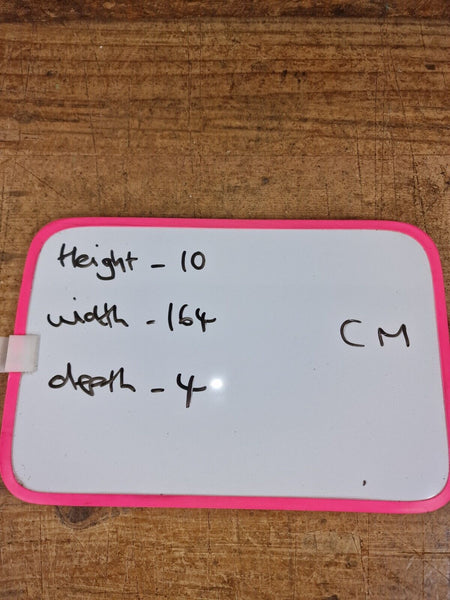 Height - 10
width - 164
CM
depth - 4